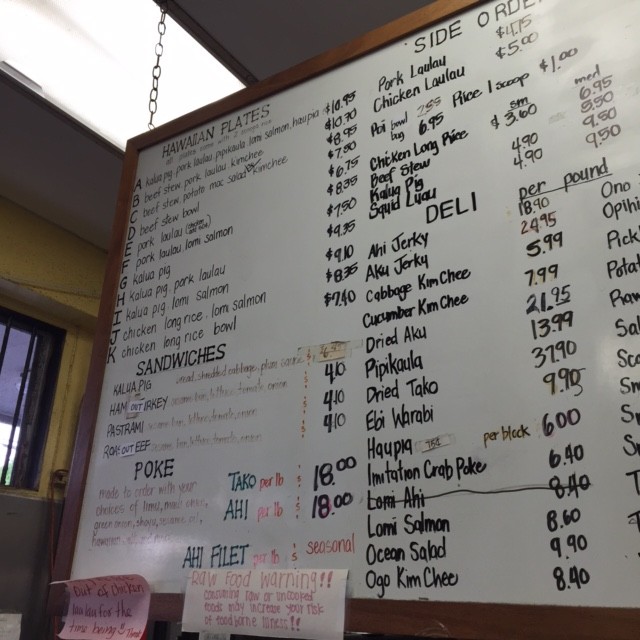 HAWAIIAN PLATES
A kalua pig pork laulau pipikaula lomi salmon, haupia $10.95
B beef stew pork laulau kimchee $10.70
C beef stew potato mac salad kimchee $8.95
D beef stew bowl $7.50
E pork laulau $6.75
F pork laulau lomi salmon $8.35
G kalua pig $7.50
H kalua pig pork laulau
I kalua pig lomi salmon
J chicken long rice, lomi salmon $8.35
K chicken long rice bowl
SANDWICHES
KALUA PIG bread, shredded cabbage, plum sauce
HAM OUT TURKEY 4.10
PASTRAMI 4.10
ROAST OUT BEEF 4.10
POKE
made to order with your
choices of limu, maui onion,
green onion, shoyu, sesame oil,
TAKO per lb $ 18.00
AHI per lb $ 18.00
AHI FILET per lb $ seasonal
Out of Chicken
laulau for the
time being
Raw Food Warning!!
consuming Raw or uncooked
foods may increase your Risk
of foodborne illness!!
SIDE ORDE
Pork Laulau $4.75
Chicken Laulau $5.00
Poi bowl 2.85 Rice 1 scoop $1.00
bag 6.95
sm med
Chicken Long Rice $3.60 6.95
Beef Stew
Kalua Pig 4.90
Squid Luau 4.90 9.50
DELI per pound
Ahi Jerky 18.90
Aku Jerky 24.95
Cabbage Kim Chee 5.99
Cucumber Kim Chee 7.99
Dried Aku 21.95
Pipikaula 13.99
Dried Tako 37.90
Ebi Warabi 9.90
Haupia per block 6.00
Imitation Crab Poke 6.40
Lomi Ahi 8.40
Lomi Salmon 8.60
Ocean Salad 9.90
Ogo Kim Chee 8.40
Ono
Opihi
Pick
Potat
Raw
Sal